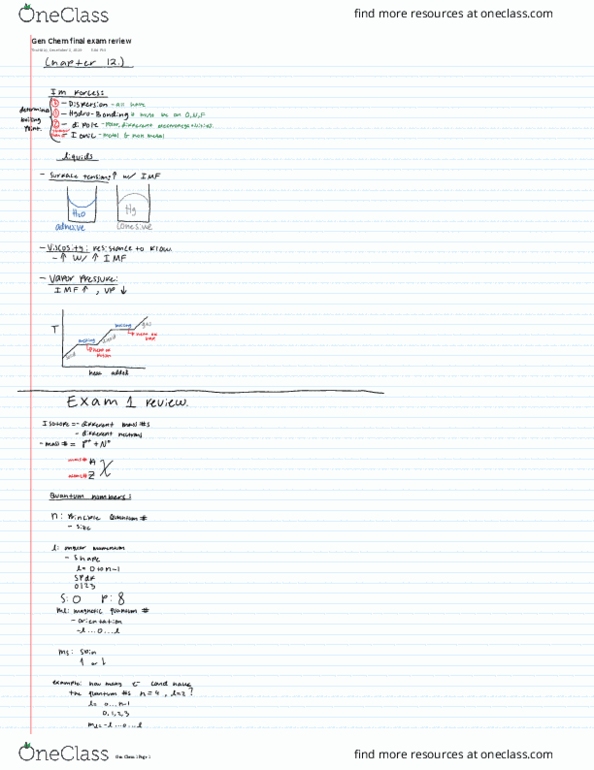 OneClass
find more resources at oneclass.com
Gen Chem final exam review
Chapter 12.)
IM Forces:
determines boiling point.
① - Dispersion - all have
- Hydro-Bonding * must be an O,N,F
- dipole - polar, different electronegativities
- Ionic - metal & non metal
liquids
- Surface tension: ↑ w/ IMF
H2O
Hg
adhesive
cohesive
- Viscosity: resistance to flow.
- ↑ w/ ↑ IMF
- Vapor Pressure:
IMF ↑ , VP ↓
T
solid
melting
heat of fusion
liquid
boiling
heat of
gas
heat added
Exam 1 review.
Isotope - different mass #s
- different neutrons
- mass # = P⁺ + N°
mass # A
Z X
Quantum numbers:
n: Principle Quantum #
- size
l: angular momentum
- Shape
l = 0 to n-1
s p d f
0 1 2 3
S: O P: 8
ml: magnetic quantum #
- orientation
-l ... 0 ... l
ms: Spin
↑ or ↓
example: how many e⁻ could have
the quantum #s n = 4 , l = 2 ?
l = 0 ... n-1
0, 1, 2, 3
ml = -l ... 0 ... l
OneClass
Gen Chem 1 Page 1
find more resources at oneclass.com